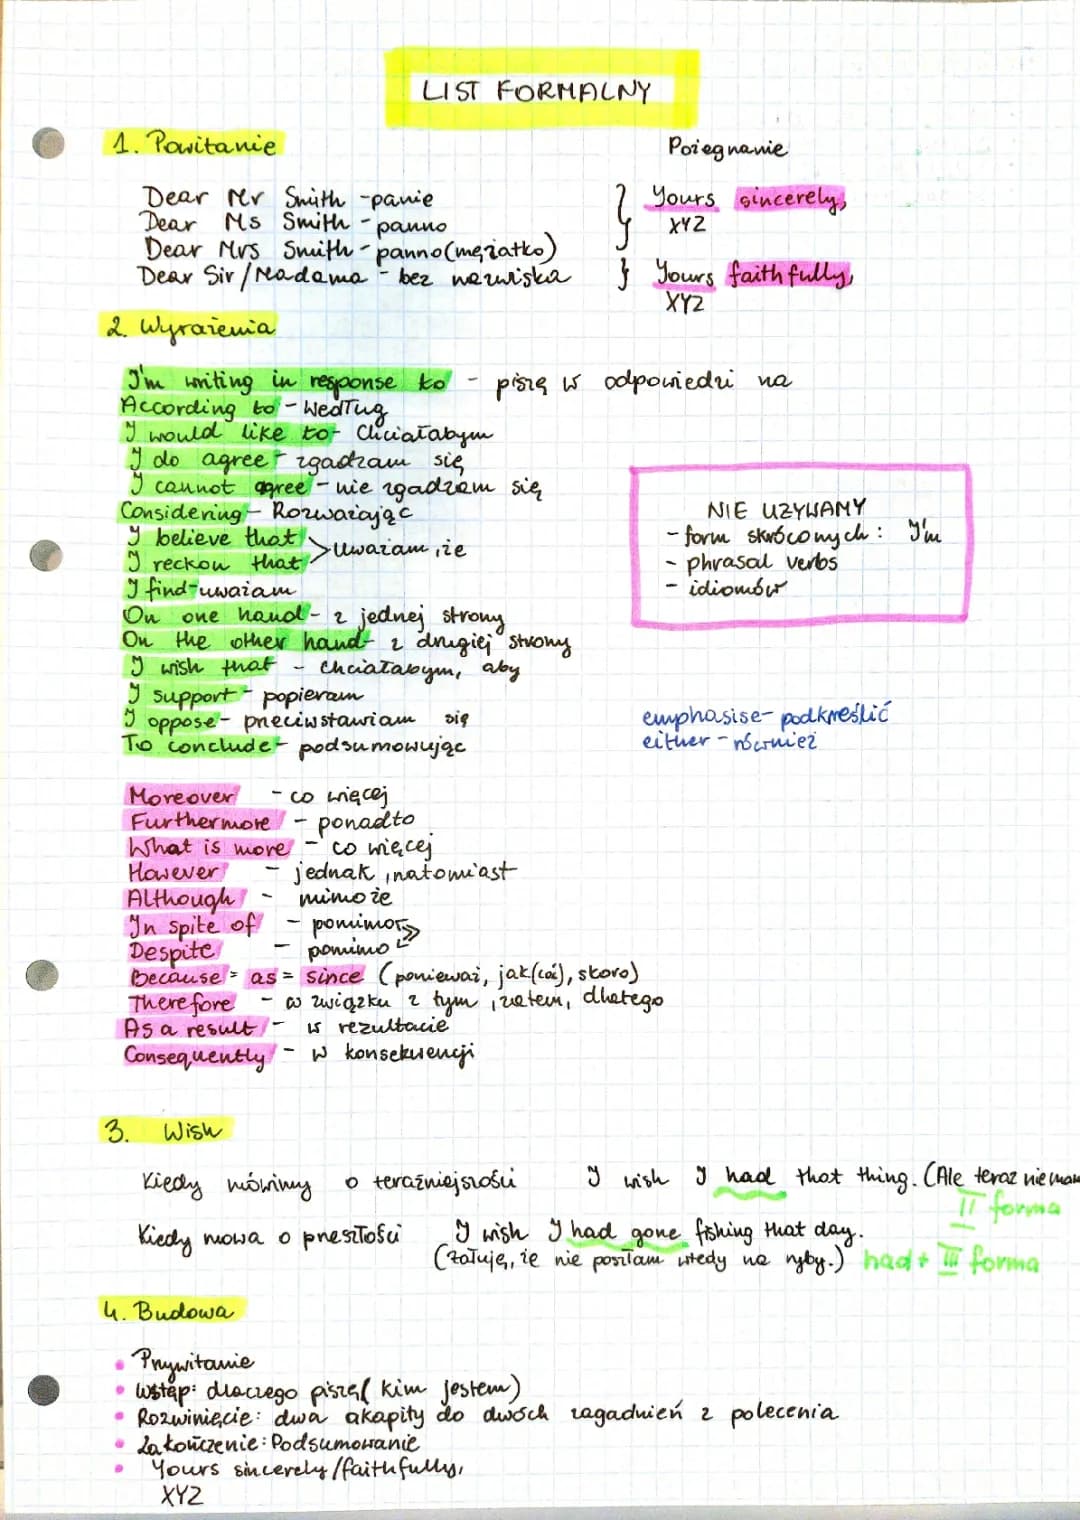 LIST FORMALNY
1. Powitanie
Pożegnanie
Dear Mr Smith - panie
Dear Ms Smith - panno
Dear Mrs Smith - panno (mężatko)
Dear Sir/Madama - bez nazwiska
Yours sincerely,
XYZ
Yours faithfully,
XYZ
2. Wyrażenia
I'm writing in response to - piszę w odpowiedzi na
According to - Według
I would like to - Chciałabym
I do agree - zgadzam się
I cannot agree - nie zgadzam się
Considering - Rozważając
I believe that
I reckon that
> Uważam, że
I find - uważam
On one hand - z jednej strony
On the other hand - z drugiej strony
I wish that - Chciałabym, aby
I support - popieram
I oppose - przeciwstawiam się
To conclude - podsumowując
NIE UŻYWAMY
- form skróconych: I'm
- phrasal verbs
- idiomów
emphasise - podkreślić
either - również
Moreover - co więcej
Furthermore - ponadto
What is more - co więcej
However - jednak, natomiast
Although - mimo że
In spite of - pomimo
Despite - pomimo
Because = as = since (ponieważ, jak(coś), skoro)
Therefore - w związku z tym, zatem, dlatego
As a result - w rezultacie
Consequently - w konsekwencji
3. Wish
Kiedy mówimy o teraźniejszości I wish I had that thing. (Ale teraz nie mam
II forma
Kiedy mowa o przeszłości I wish I had gone fishing that day.
(żałuję, że nie poszłam wtedy na ryby.) had + III forma
4. Budowa
• Przywitanie
• Wstęp: dlaczego piszę (kim jestem)
• Rozwinięcie: dwa akapity do dwóch zagadnień z polecenia
• Zakończenie: Podsumowanie
• Yours sincerely/faithfully,
XYZ